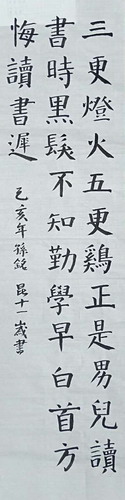 三更燈火五更鷄正是男兒讀
書時黑髮不知勤學早白首方
悔讀書遲
己亥年孫銘昆十一歲書